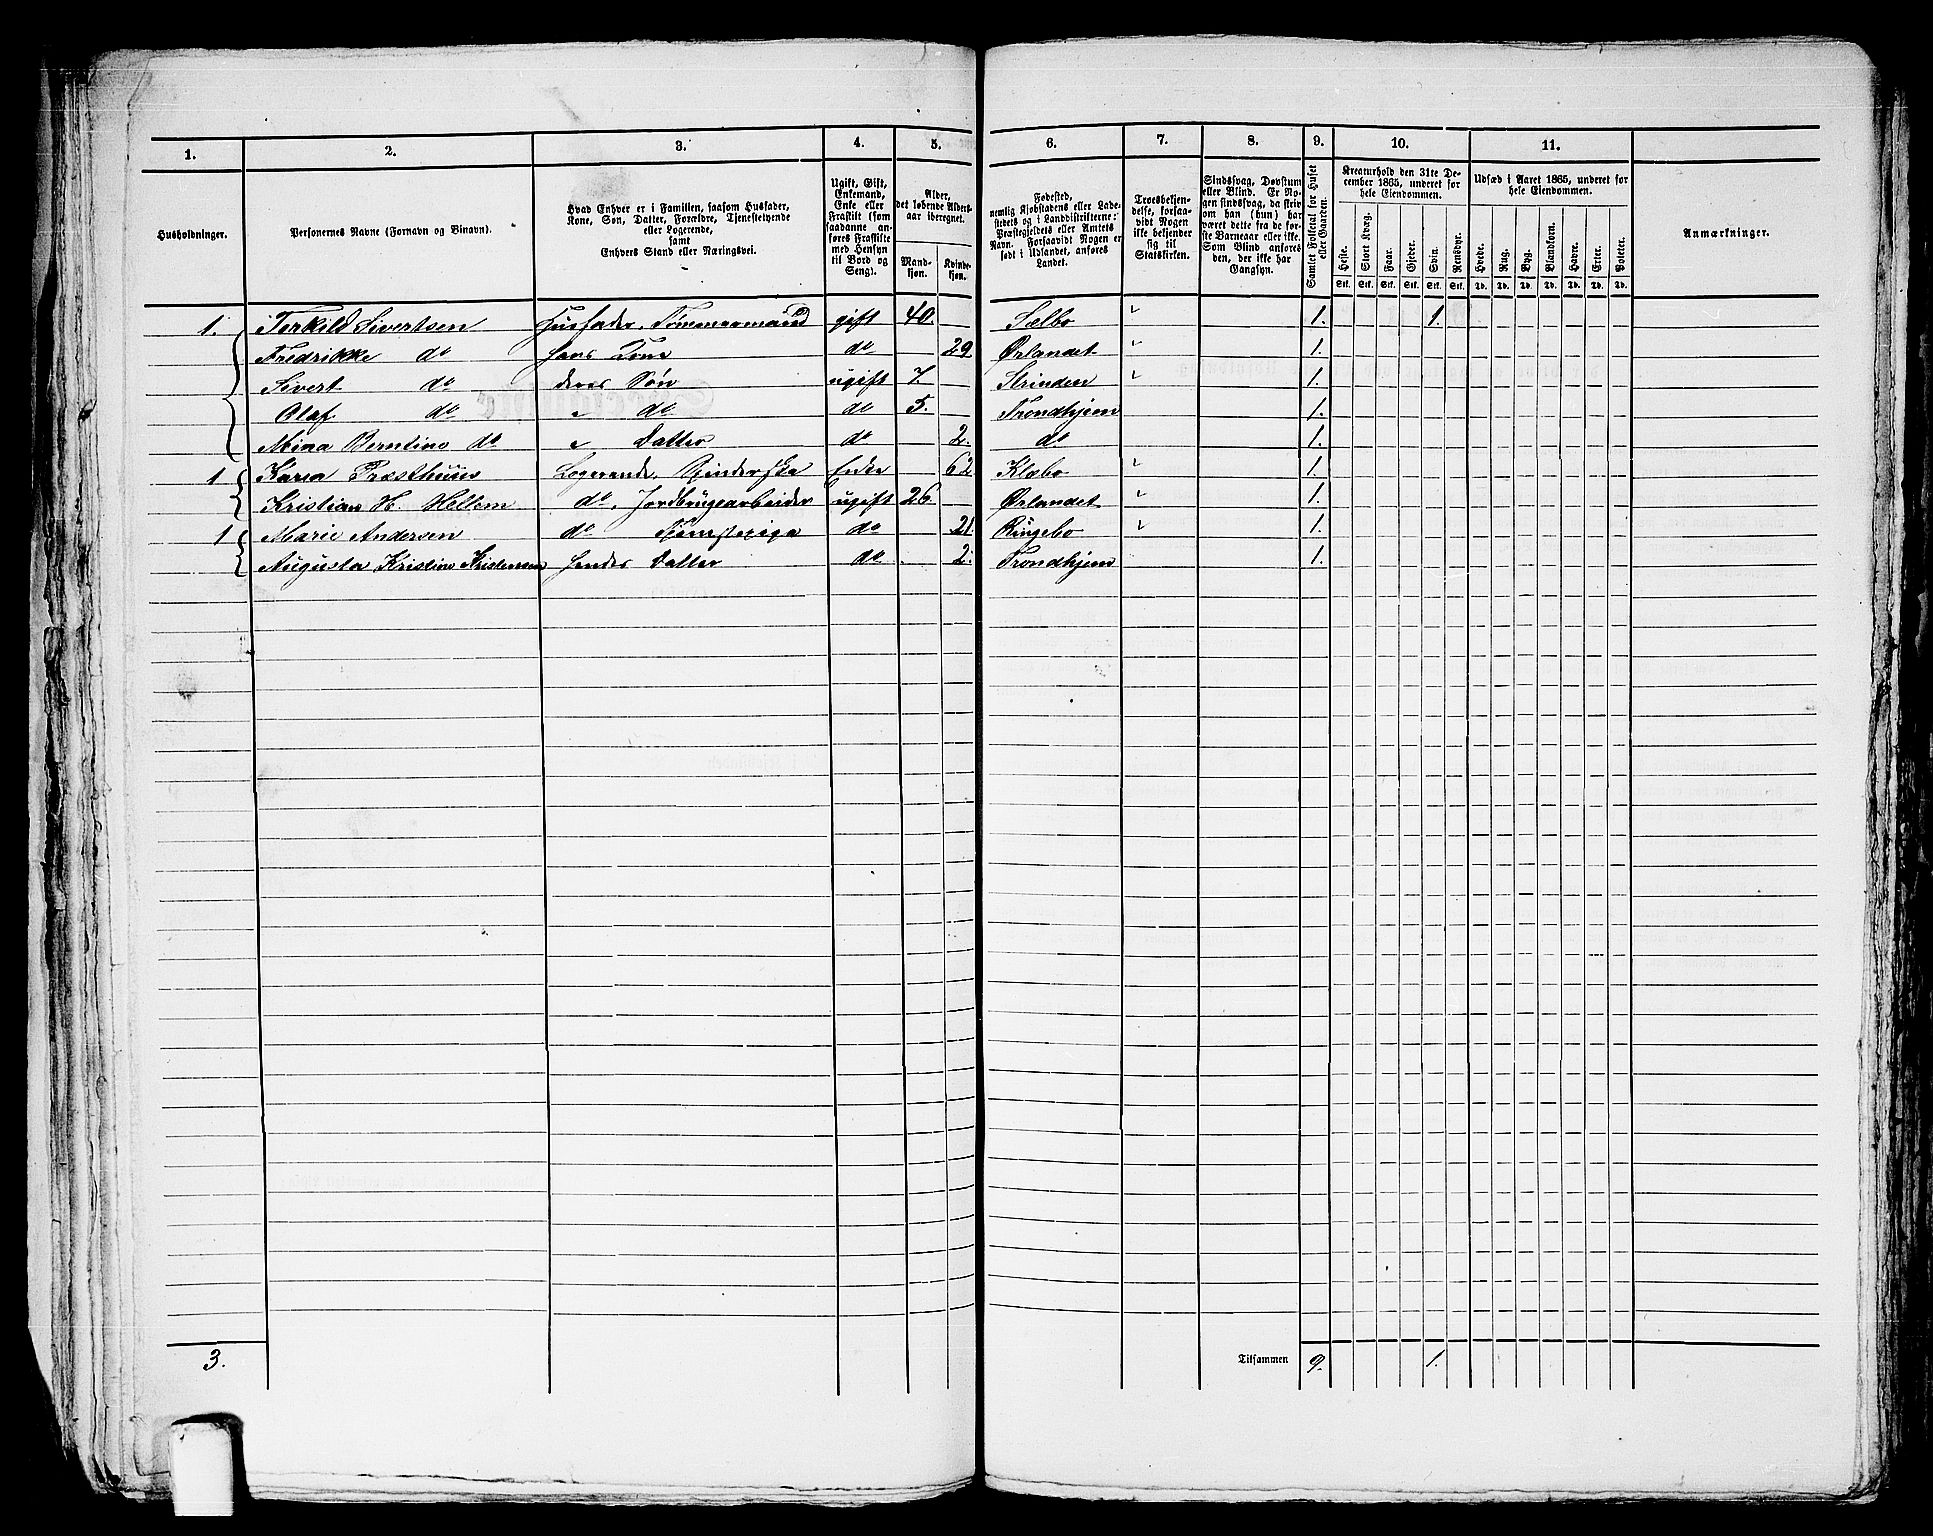 1. 2. 3. 4. 5. 6. 7. 8. 9. 10. 11.
Husholdninger.
Personernes Navne (Fornavn og Binavn).
Hvad Enhver er i Familien, saasom Husfader,
Kone, Søn, Datter, Forældre, Tjenestetyende
eller Logerende,
samt
Enhvers Stand eller Næringsvei.
Ugift, Gift,
Enkemand,
Enke eller
Fraskilt (som
saadanne an-
føres Fraskilte
med Hensyn
til Bord og
Seng).
Alder,
det løbende Alders-
aar iberegnet.
Mand-
kjøn.
Kvinde-
kjøn.
Fødested,
nemlig Kjøbstadens eller Lade-
stedets og i Landdistrikterne:
Præstegjeldets eller Amtets
Navn. Forsaavidt Nogen er
født i Udlandet, anføres
Landet.
Troesbekjen-
delse, forsaa-
vidt Nogen
ikke bekjender
sig til
Statskirken.
Sindssvag, Døvstum
eller Blind. Er No-
gen sindssvag, da skriv
om han (hun) har
været dette fra de før-
ste Barneaar eller ikke.
Som Blind anføres
den, der ikke har
Gangsyn.
Samlet Folketal for Huset
eller Gaarden.
Kreaturhold den 31te De-
cember 1865, underet for
hele Eiendommen.
Heste. Stort Kvæg. Faar. Gjeder. Svin. Rensdyr.
Stk. Stk. Stk. Stk. Stk. Stk.
Udsæd i Aaret 1865, underet for
hele Eiendommen.
Hvede. Rug. Byg. Blandkorn. Havre. Erter. Poteter.
Td. Td. Td. Td. Td. Td. Td.
Anmærkninger.
1. Terkild Sivertsen Husfader, Tømmermand gift 40. Sælbo 1. 1.
Fredrikke do hans Kone do 29 Ørlandet 1.
Sivert do deres Søn ugift 7. Strinden 1.
Olaf do " do do 5. Trondhjem 1.
Mina Berntine do " Datter do 2. do 1.
1 Karen Præsthuus Logerende, Spinderske Enke 62 Klæbo 1.
Kristian H. Hellem do, Jordbrugsarbeider ugift 26. Ørlandet 1.
1 Marie Andersen do Tjenestepige do 21. Ringebo 1.
Augusta Kristine Kristensen hendes Datter do 2. Trondhjem 1.
3. Tilsammen 9. 1.